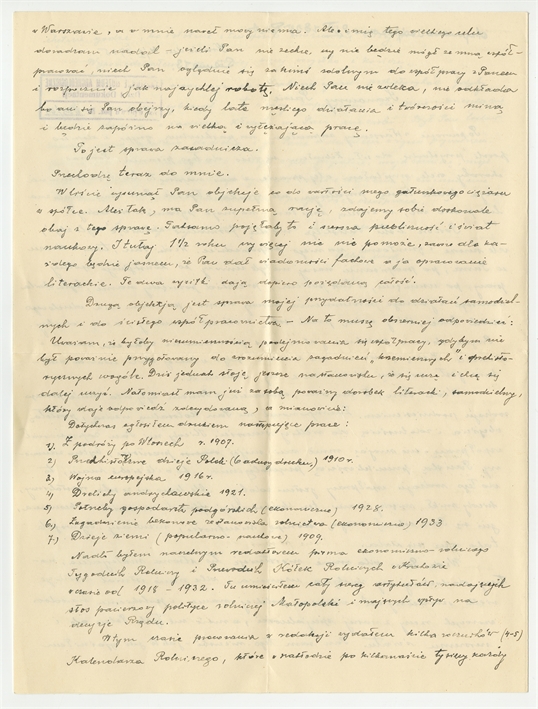 w Warszawie, a w mnie narost mocy niema. Ale imię tego wielkiego celu
doradzam nadal - jeśli Pan nie zechce, czy nie będzie mógł ze mną współ-
pracować niech Pan oglądnie się za kimś zdolnym do współpracy z Panem
i rozpocznie jak najrychlej robotę. Niech Pan nie zwleka, nie odkłada
bo ani się Pan obejrzy, kiedy lata męskiego działania i twórczości miną
i będzie zapóźno na wielką i wytężającą pracę.
To jest sprawa zasadnicza.
Przechodzę teraz do mnie.
W liście wysunął Pan objekcje co do wartości mego gatunkowego ciężaru
w spółce. Ależ tak, ma Pan zupełną rację, zdajemy sobie doskonale
obaj z tego sprawę. Tak samo pojęłaby to i szersza publiczność i świat
naukowy. I tutaj 1 1/2 roku czy więcej nic nie pomoże, zawsze dla ka-
żdego będzie jasnem, że Pan dał wiadomości fachowe a ja opracowanie
literackie. Te dwa wysiłki dają dopiero pożądaną całość.
Drugą objekcją jest sprawa mojej przydatności do działań samodziel-
nych i do ścisłego współpracownictwa. - Na to muszę obszerniej odpowiedzieć:
Uważam, że byłoby nieumiennością podejmowanie się współpracy, gdybym nie
był poważnie przygotowany do zrozumienia zagadnień „krzemiennych" i prehisto-
rycznych wogóle. Dziś jednak stoję jeszcze na stanowisku, że się uczę i chcę się
dalej uczyć. Natomiast mam już za sobą poważny dorobek literacki, samodzielny,
który daje odpowiedź zdecydowaną, a mianowicie:
Dotychczas ogłosiłem drukiem następujące prace:
1) Z podróży po Włoszech r. 1907.
2) Przedhistoryczne dzieje Polski (6 arkuszy druku) 1910 r.
3) Wojna europejska 1916 r.
4) Drelichy andrychowskie 1921.
5) Potrzeby gospodarstw podgórskich (ekonomiczne) 1928.
6) Zagadnienie bekonowe ze stanowiska rolnictwa (ekonomiczne) 1933
7.) Dzieje ziemi (popularno-naukowe) 1909.
Nadto byłem naczelnym redaktorem pisma ekonomiczno-rolniczego
Tygodnik Rolniczy i Przewodnik Kółek Rolniczych w Krakowie
w czasie od 1918 - 1932. Tu umieściłem cały szereg artykułów, nadających
stos pacierzowy polityce rolniczej Małopolski i mających wpływ na
decyzje Rządu.
W tym czasie pracowania w redakcji wydałem kilka roczników (4-5)
Kalendarza Rolniczego, które w nakładzie po kilkanaście tysięcy każdy